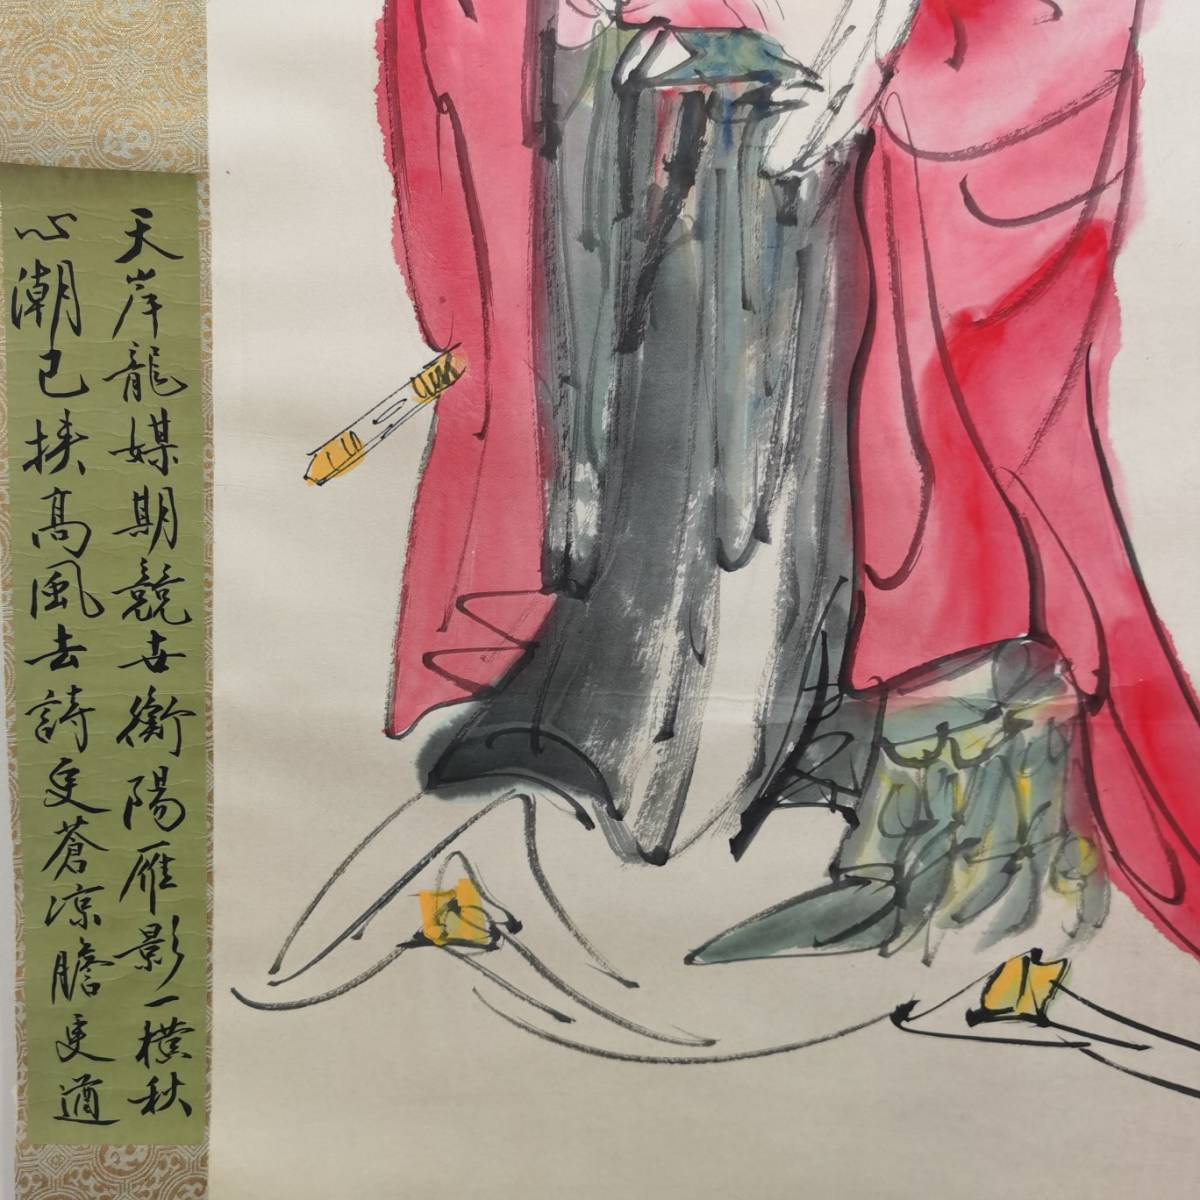 天岸龍媒期競世衡陽雁影一樸秋
心潮已挾高風去詩更蒼涼膽更遒